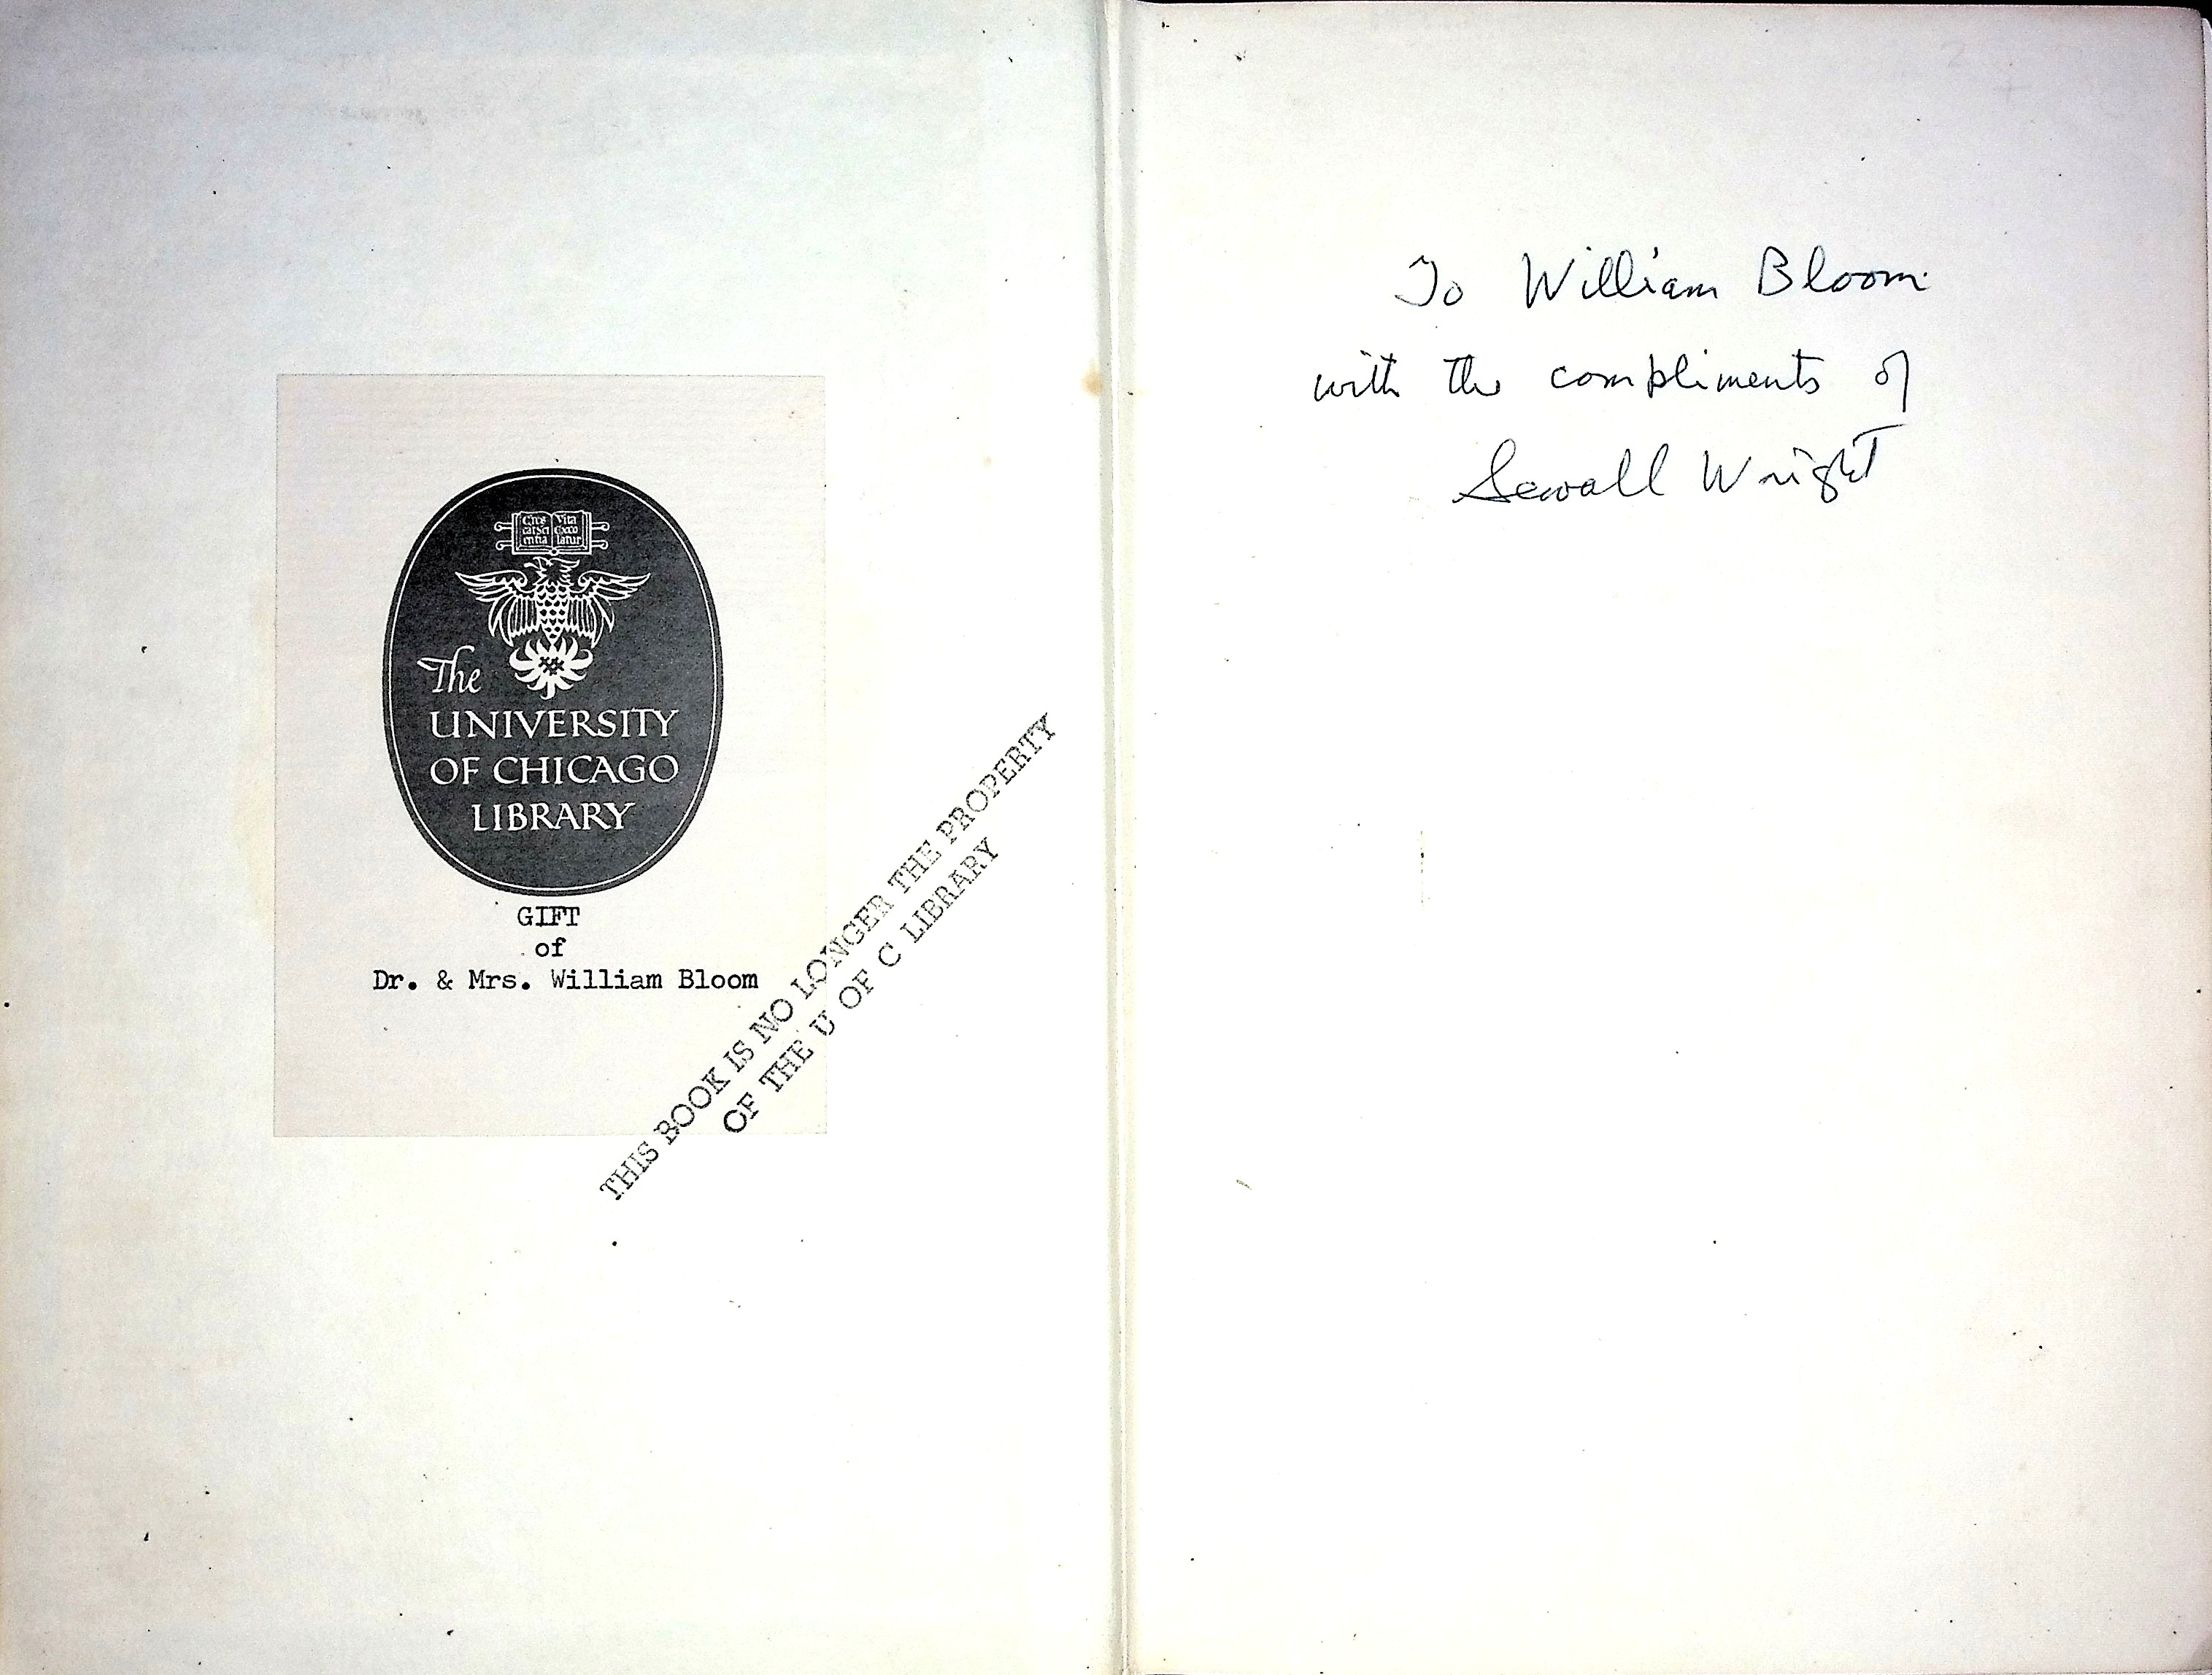 Cres Vita
cat Sci Exco
entia latur
The
UNIVERSITY
OF CHICAGO
LIBRARY
GIFT
of
Dr. & Mrs. William Bloom
THIS BOOK IS NO LONGER THE PROPERTY
OF THE U OF C LIBRARY
To William Bloom
with the compliments of
Sewall Wright